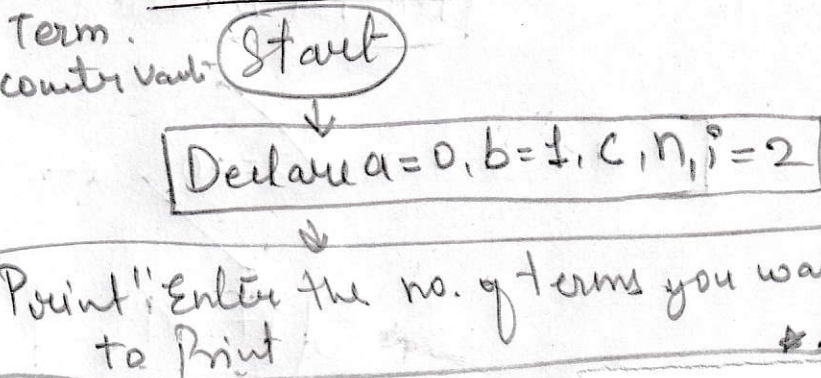 Term.
Start
Declare a=0, b=1, c, n, i=2
Print": Enter the no. of terms you wa
to Print